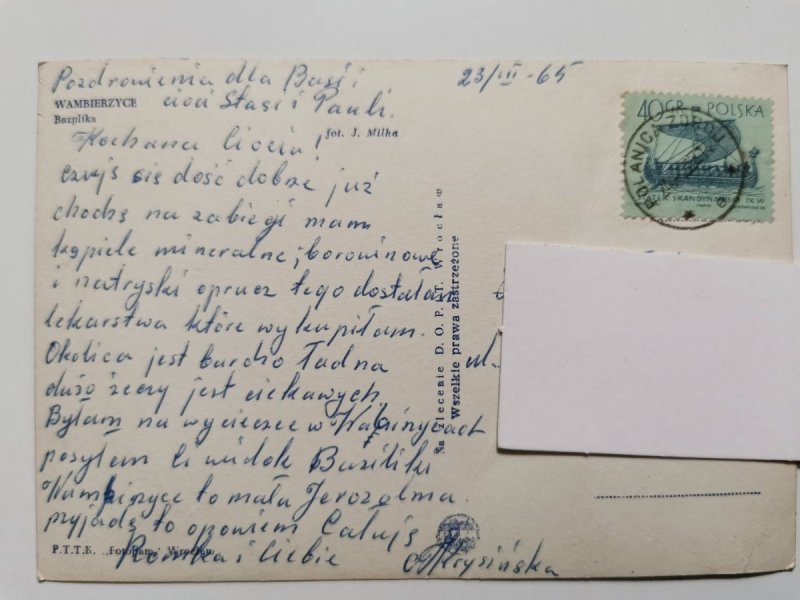 Pozdrowienia dla Basi i
cioci Stasi i Pauli.
23/III-65
WAMBIERZYCE
Bazylika
fot. J. Milka
Kochana Ciocia!
czuję się dość dobrze już
chodzę na zabiegi mam
kąpiele mineralne, borowinowe
i natryski oprucz tego dostałam
lekarstwa które wykupiłam.
Okolica jest bardzo ładna
dużo rzeczy jest ciekawych.
Byłam na wycieczce w
posyłam Ci widok Baziliki
to mała Jerozolma.
przyjadę to opowiem Całuję
Romka i Ciebie
P.T.T.K. „Fotopam" Wrocław
Na zlecenie D. O. P. i T. Wrocław
Wszelkie prawa zastrzeżone
40 GR POLSKA
STATEK SKANDYNAWSKI IX W
POLANICA ZDRÓJ
ul.